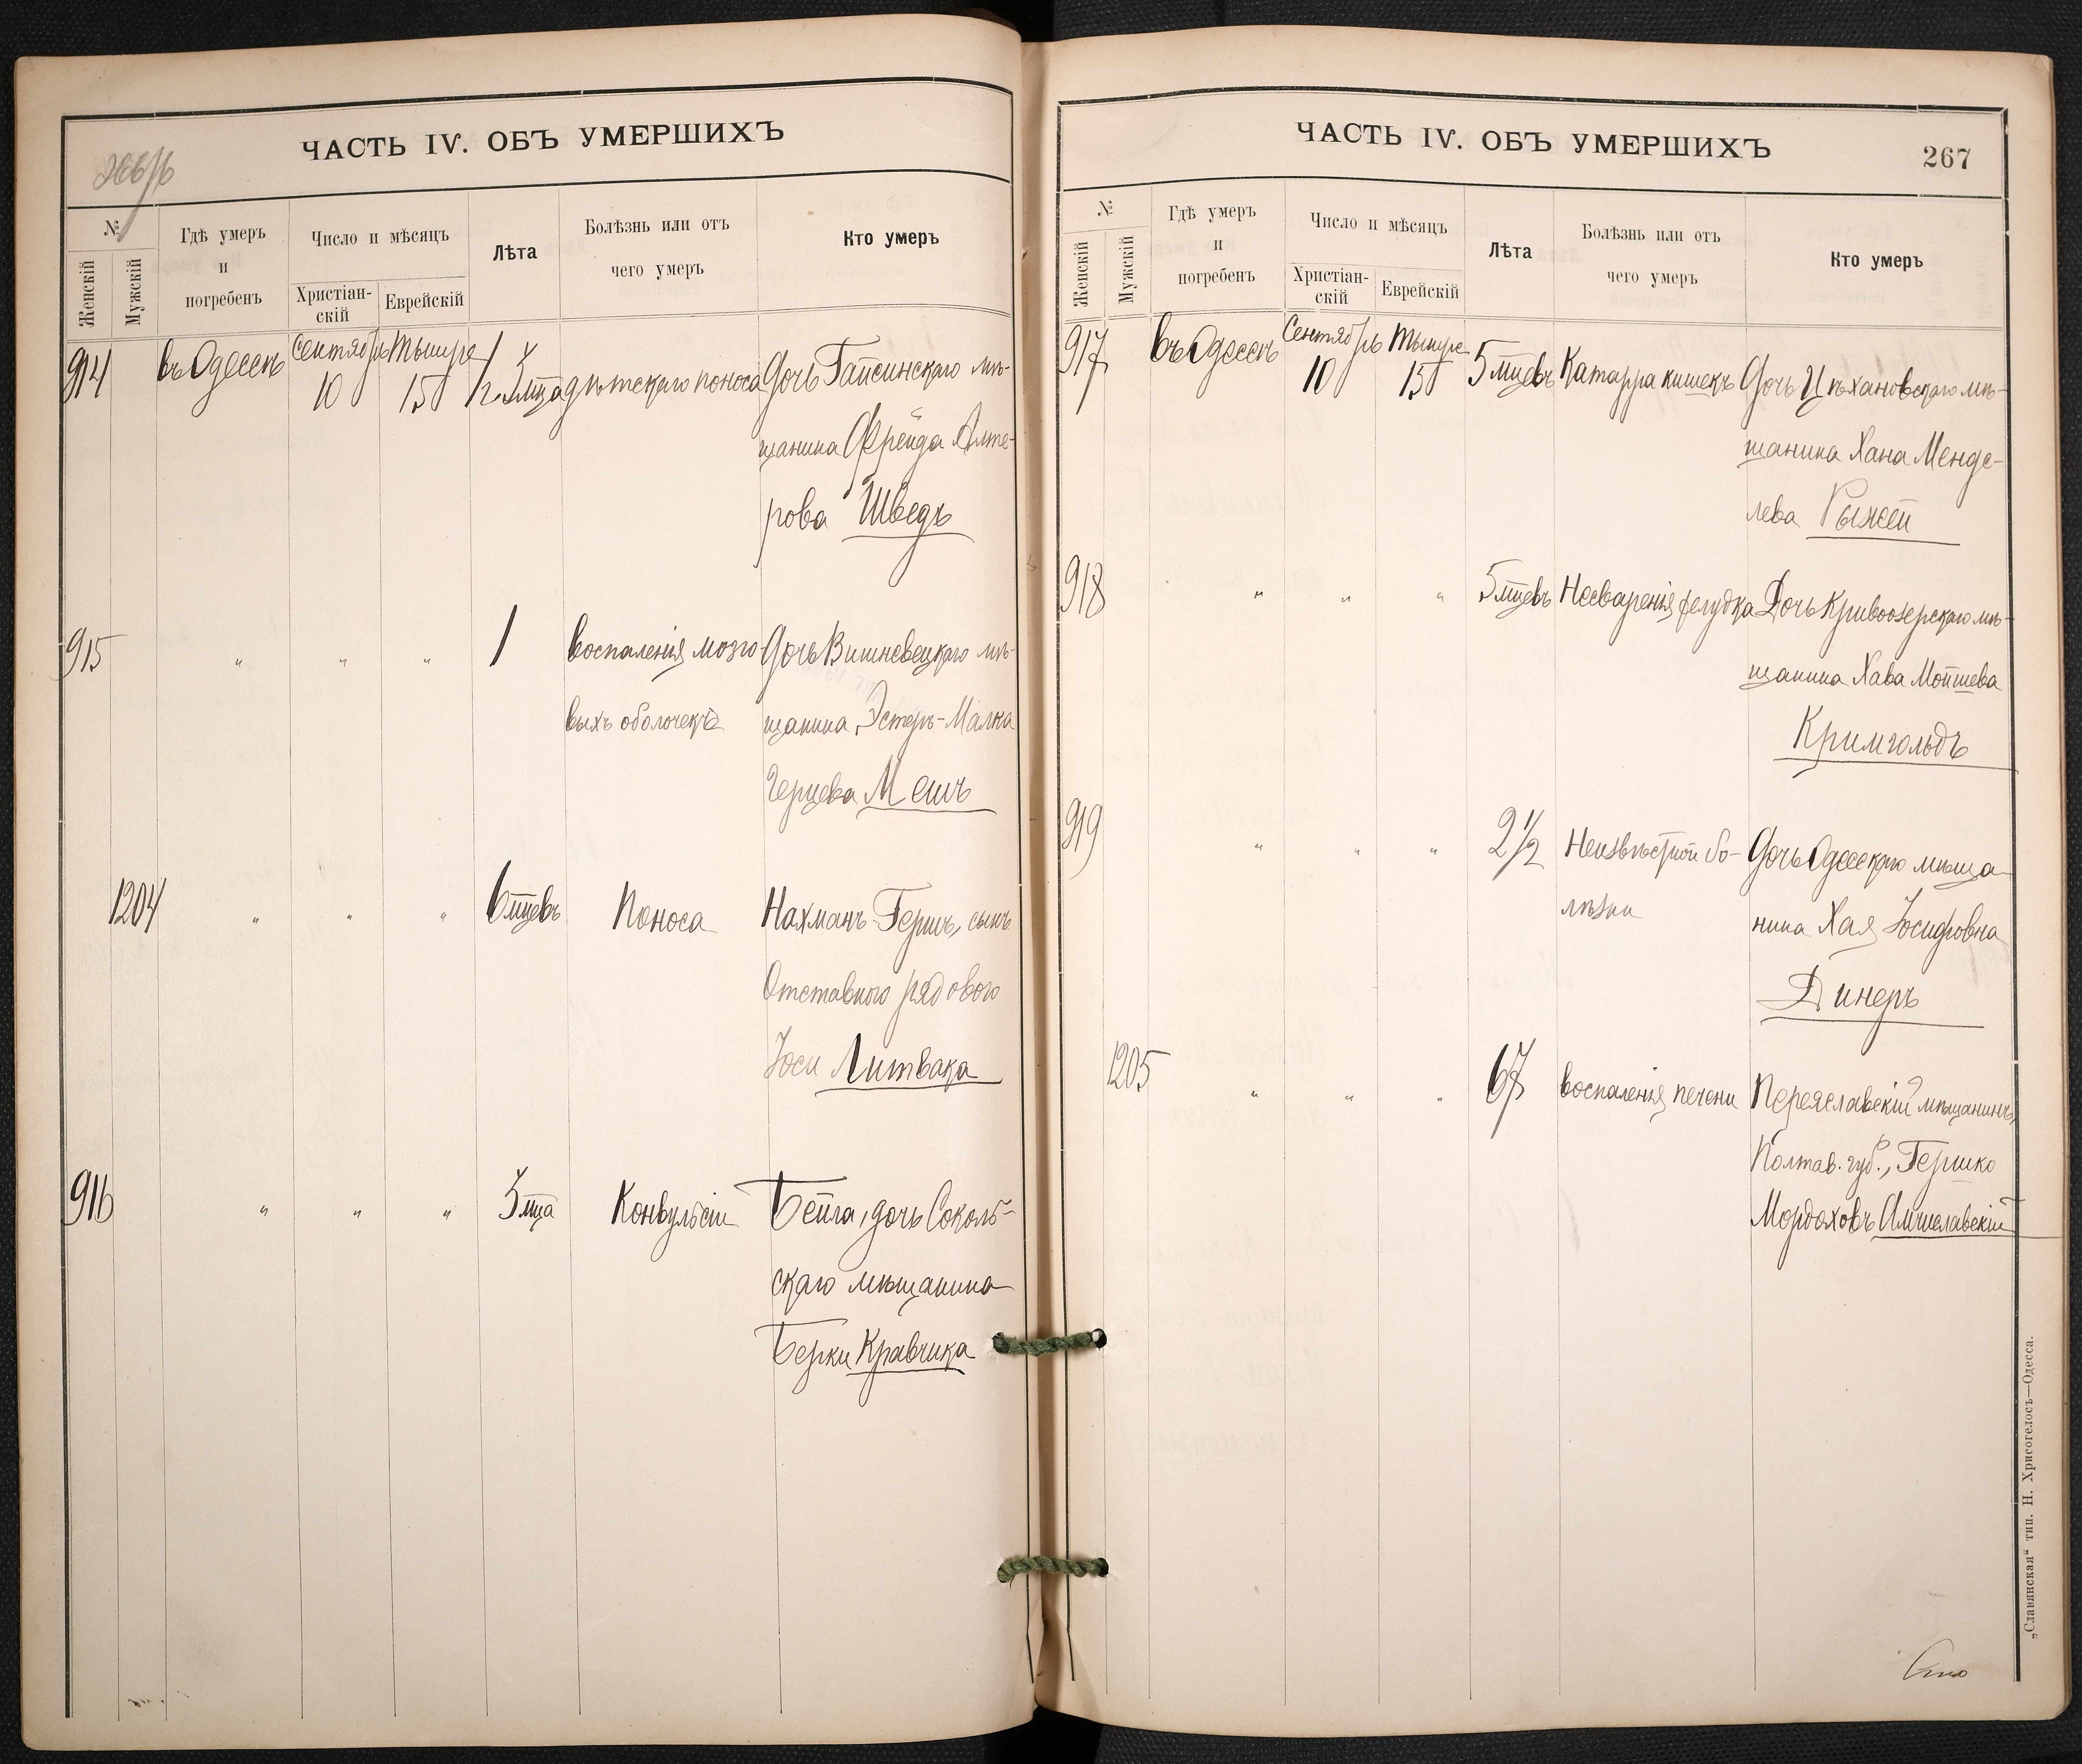 ЧАСТЬ IV. ОБЪ УМЕРШИХЪ
№
Женскій
Мужскій
Гдѣ умеръ
и
погребенъ
Число и мѣсяцъ
Христіан-
скій
Еврейскій
Лѣта
Болѣзнь или отъ
чего умеръ
Кто умеръ
914 въ Одессѣ Сентябрь Тышре дѣтскаго поноса Дочь Гайсинскаго мѣ-
10 15
щанина Фрейда Алте-
рова Шведъ
915 " " " 1 воспаленія мозго- Дочь Вишневецкаго мѣ-
выхъ оболочекъ щанина, Эстеръ-Малка
Герцева Мешъ
1204 " " " 6 мцевъ Поноса Нахманъ-Гершъ, сынъ
Отставного рядового
Іоси Литвака
916 " " " 3 мца Конвульсіи Бейла, дочь Соколь-
скаго мѣщанина
Берки Кравчика
ЧАСТЬ IV. ОБЪ УМЕРШИХЪ
267
№
Женскій
Мужскій
Гдѣ умеръ
и
погребенъ
Число и мѣсяцъ
Христіан-
скій
Еврейскій
Лѣта
Болѣзнь или отъ
чего умеръ
Кто умеръ
917 въ Одессѣ Сентябрь Тышре 5 мцевъ Катарра кишекъ Дочь Цѣхановскаго мѣ-
10 15
щанина Хана Менде-
лева Рыжей
918 " " " 5 мцевъ Несваренія желудка Дочь Кривоозерскаго мѣ-
щанина Хава Мошева
Кримгольдъ
919 " " " 2 1/2 Неизвѣстной бо- Дочь Одесскаго мѣща-
лѣзни нина Хая Іосифовна
Динеръ
1205 " " " 67 воспаленія печени Переяславскій мѣщанинъ,
Полтав. губ., Гершко
Мордоховъ Амчиславскій
„Славянская“ тип. Н. Хрисогелосъ—Одесса.